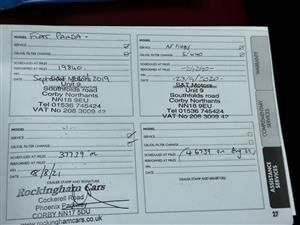 MODEL Fiat Panda
SERVICE
OIL/OIL FILTER CHANGE
SCHEDULED AT MILES
PERFORMED AT MILES 19840
Sept 2019
Unit 9
Southfolds road
Corby Northants
NN18 9EU
Tel 01536 745424
VAT No 208 3009 42
MODEL
SERVICE
OIL/OIL FILTER CHANGE
SCHEDULED AT MILES
PERFORMED AT MILES
B&T Motors
Unit 9
Southfolds road
Corby Northants
NN18 9EU
VAT No 208 3009
MODEL
SERVICE
OIL/OIL FILTER CHANGE
SCHEDULED AT MILES 37729
PERFORMED AT MILES
08/8/21
DEALER STAMP AND SIGNATURE
Rockingham Cars
Cockerell Road
Phoenix Parkway
CORBY NN17 5DU
rockinghamcars.co.uk
MODEL
SERVICE
OIL/OIL FILTER CHANGE
SCHEDULED AT MILES
PERFORMED AT MILES
DEALER STAMP AND SIGNATURE
WARRANTY
COMPLEMENTARY SERVICES
ASSISTANCE SERVICES
27